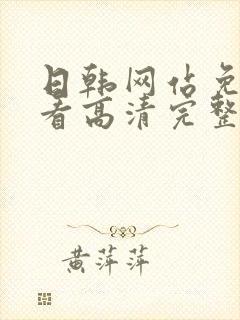 日韩网估免
看高清完整
黄萍萍